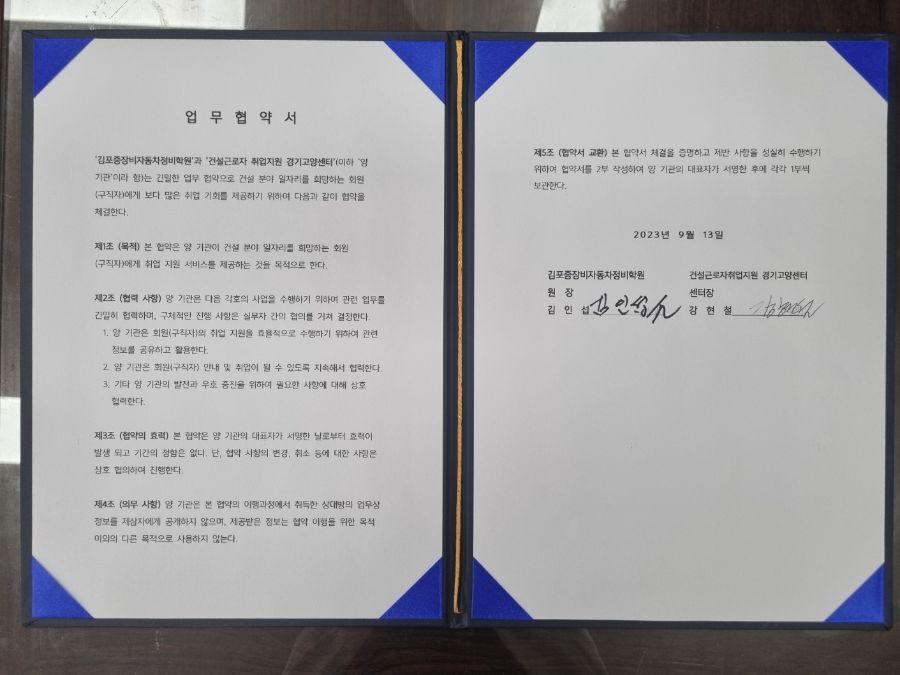 업 무 협 약 서
'김포중장비자동차정비학원'과 '건설근로자 취업지원 경기고양센터'(이하 '양
기관'이라 함)는 긴밀한 업무 협약으로 건설 분야 일자리를 희망하는 회원
(구직자)에게 보다 많은 취업 기회를 제공하기 위하여 다음과 같이 협약을
체결한다.
제1조 (목적) 본 협약은 양 기관이 건설 분야 일자리를 희망하는 회원
(구직자)에게 취업 지원 서비스를 제공하는 것을 목적으로 한다.
제2조 (협력 사항) 양 기관은 다음 각호의 사업을 수행하기 위하여 관련 업무를
긴밀히 협력하며, 구체적인 진행 사항은 실무자 간의 협의를 거쳐 결정한다.
1. 양 기관은 회원(구직자)의 취업 지원을 효율적으로 수행하기 위하여 관련
정보를 공유하고 활용한다.
2. 양 기관은 회원(구직자) 안내 및 취업이 될 수 있도록 지속해서 협력한다.
3. 기타 양 기관의 발전과 우호 증진을 위하여 필요한 사항에 대해 상호
협력한다.
제3조 (협약의 효력) 본 협약은 양 기관의 대표자가 서명한 날로부터 효력이
발생 되고 기간의 정함은 없다. 단, 협약 사항의 변경, 취소 등에 대한 사항은
상호 협의하여 진행한다.
제4조 (의무 사항) 양 기관은 본 협약의 이행과정에서 취득한 상대방의 업무상
정보를 제삼자에게 공개하지 않으며, 제공받은 정보는 협약 이행을 위한 목적
이외의 다른 목적으로 사용하지 않는다.
제5조 (협약서 교환) 본 협약서 체결을 증명하고 제반 사항을 성실히 수행하기
위하여 협약서를 2부 작성하여 양 기관의 대표자가 서명한 후에 각각 1부씩
보관한다.
2023년 9월 13일
김포중장비자동차정비학원 건설근로자취업지원 경기고양센터
원 장 센터장
김 인 섭 강 현 철